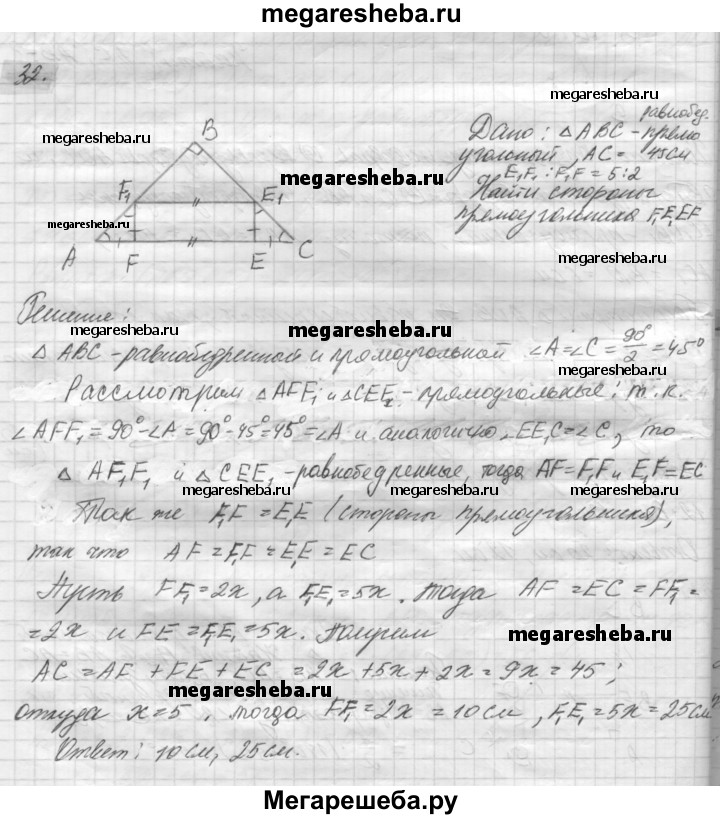 megaresheba.ru
32.
megaresheba.ru
B
F₁
E₁
A
F
E
C
megaresheba.ru
megaresheba.ru
megaresheba.ru
равнобед.
Дано: △ ABC - прямо
угольный, AC = 45см
E₁F₁ : F₁F = 5:2
Найти стороны
прямоугольника F₁E₁EF
megaresheba.ru
megaresheba.ru
Решение:
megaresheba.ru
megaresheba.ru
△ ABC - равнобедренный и прямоугольной ∠A=∠C = 90°/2 = 45°
Рассмотрим △AFF₁ и △CEE₂ - прямоугольные: т.к.
megaresheba.ru
∠AFF₁ = 90°-∠A = 90°-45°=45°=∠A и аналогично ∠EE₁C=∠C, то
△ AF₁F₁ и △CEE₁ - равнобедренные, тогда AF=F₁F и E₁F=EC
megaresheba.ru
megaresheba.ru
megaresheba.ru
Так же F₁F = E₁E (стороны прямоугольника),
так что AF = F₁F = EE₁ = EC
Пусть FF₁=2x, а F₁E₁=5x. Тогда AF = EC = FF₁ =
=2x и FE = F₁E₁ = 5x. Получим
megaresheba.ru
AC = AF + FE + EC = 2x + 5x + 2x = 9x = 45;
megaresheba.ru
откуда x = 5, тогда FF₁ = 2x = 10см, F₁E₁ = 5x = 25см
Ответ: 10см, 25см.
Мегарешеба.ру